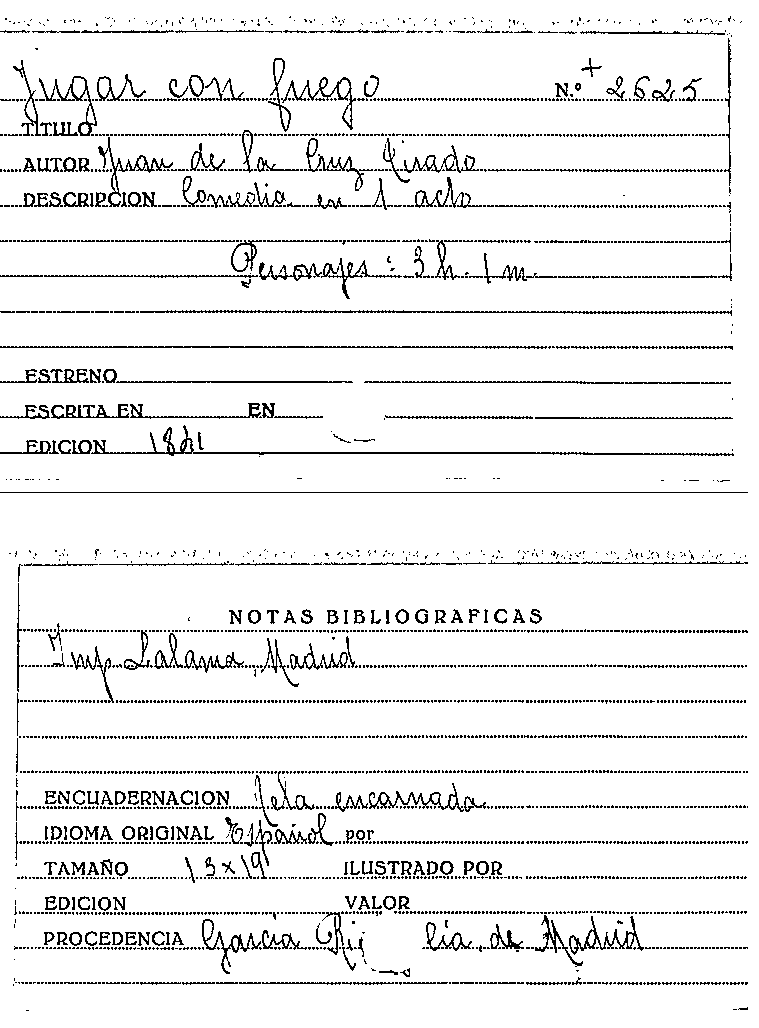 Jugar con fuego N.º + 2625
TITULO
AUTOR Juan de la Cruz Tirado
DESCRIPCION Comedia en 1 acto
Personajes: 3 h. 1 m.
ESTRENO
ESCRITA EN EN
EDICION
NOTAS BIBLIOGRAFICAS
Imp. Lalama, Madrid
ENCUADERNACION Tela encarnada
IDIOMA ORIGINAL Español por
TAMAÑO 13x19 ILUSTRADO POR
EDICION VALOR
PROCEDENCIA García cía. de Madrid